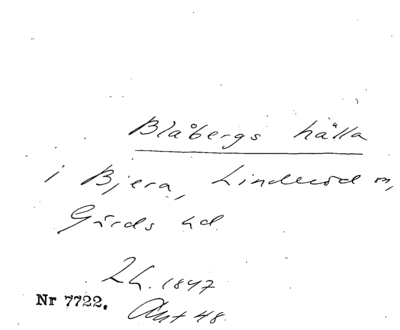 Blåbergs hälla
i Bjera, Linderöd sn,
Gärds hd.
Lh. 1847
Nr 7722. Akt 48.